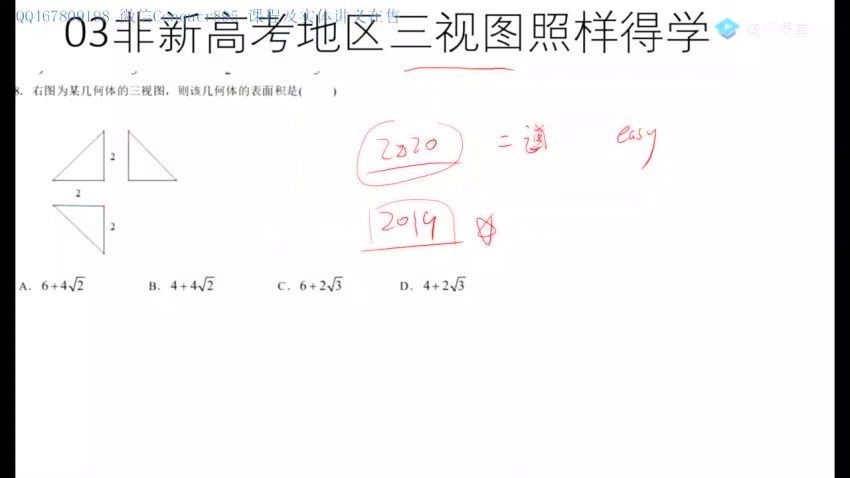 QQ167809198 微信Conquer805 课程及实体讲义在售
03非新高考地区三视图照样得学
腾讯课堂
8. 右图为某几何体的三视图，则该几何体的表面积是( )
2020 二道 easy
2
2
2019
2
A. 6+4√2 B. 4+4√2 C. 6+2√3 D. 4+2√3